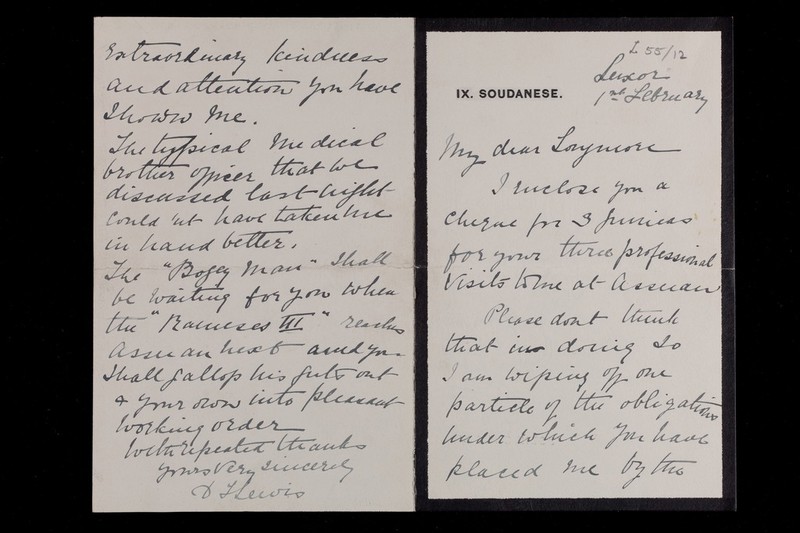 L 55/12
IX. SOUDANESE.
Luxor
1st February
My dear Longmore
I enclose you a
cheque for 3 Guineas
for your three professional
visits to me at Assuan
Please dont think
that in doing so
I am wiping off one
particle of the obligations
under which you have
placed me by the
extraordinary kindness
and attention you have
shown me.
The typical medical
brother officer that we
discussed last night
could 'nt have taken me
in hand better.
The "Bogey Man" shall
be waiting for you when
the "Rameses III" reaches
Assuan next and you
shall gallop his guts out
& your own into pleasant
working order
With repeated thanks
yours very sincerely
D F Lewis